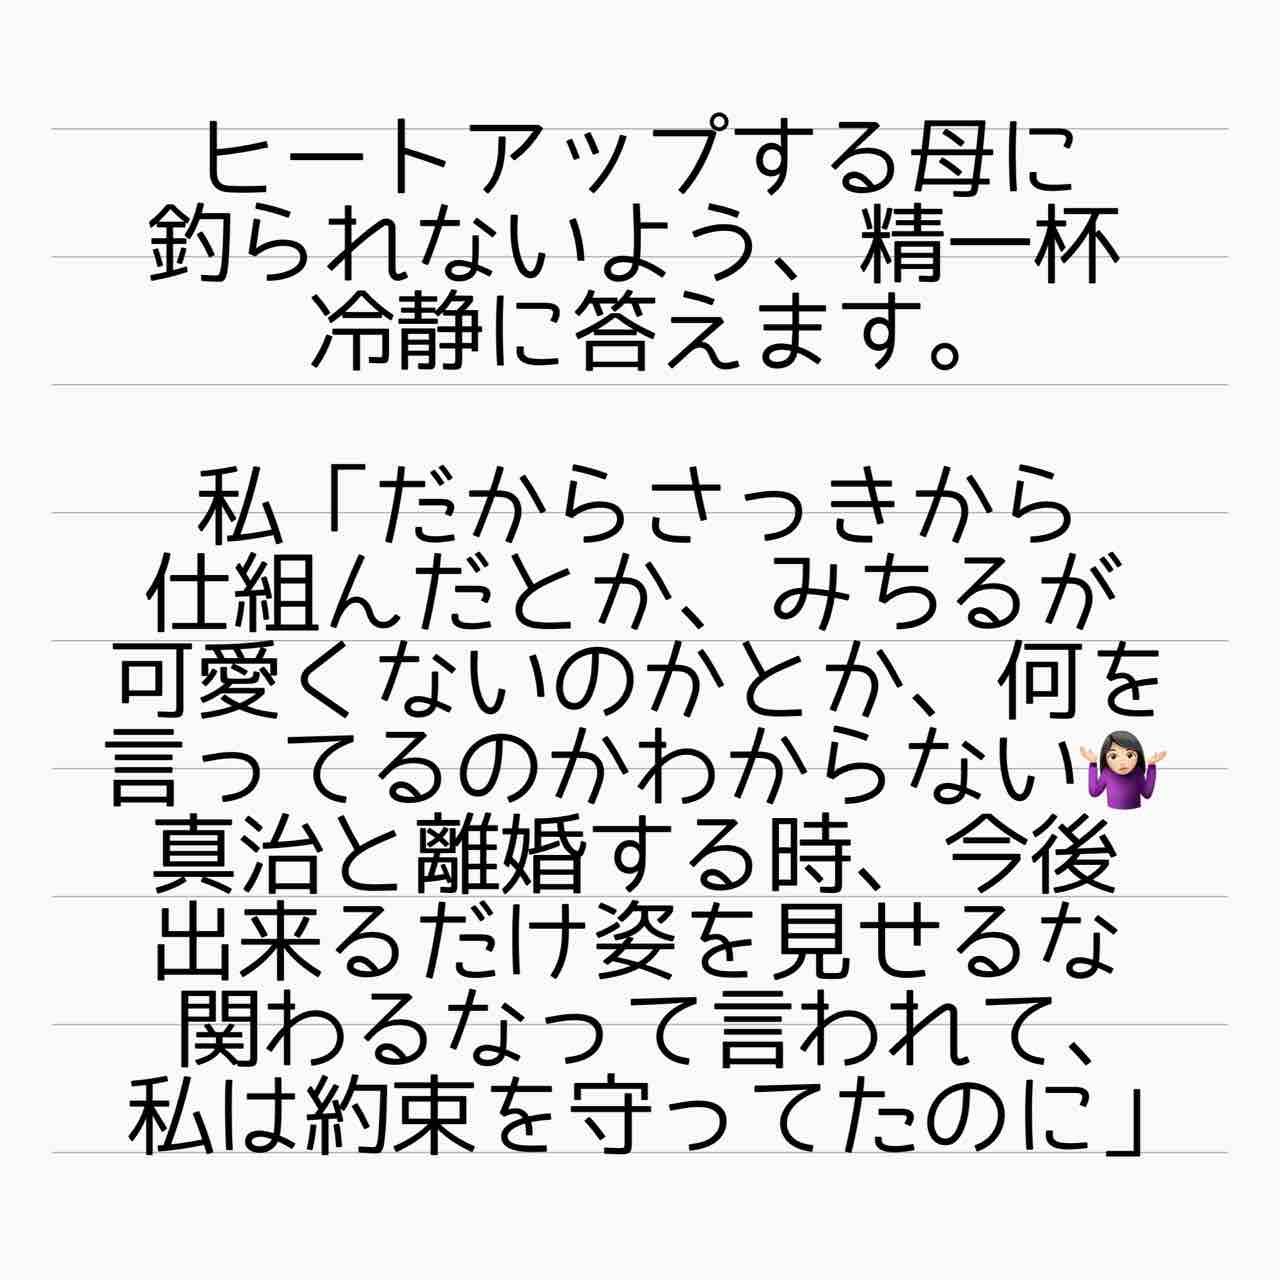 ヒートアップする母に
釣られないよう、精一杯
冷静に答えます。
私「だからさっきから
仕組んだとか、みちるが
可愛くないのかとか、何を
言ってるのかわからない🤷🏻‍♀️
真治と離婚する時、今後
出来るだけ姿を見せるな
関わるなって言われて、
私は約束を守ってたのに」